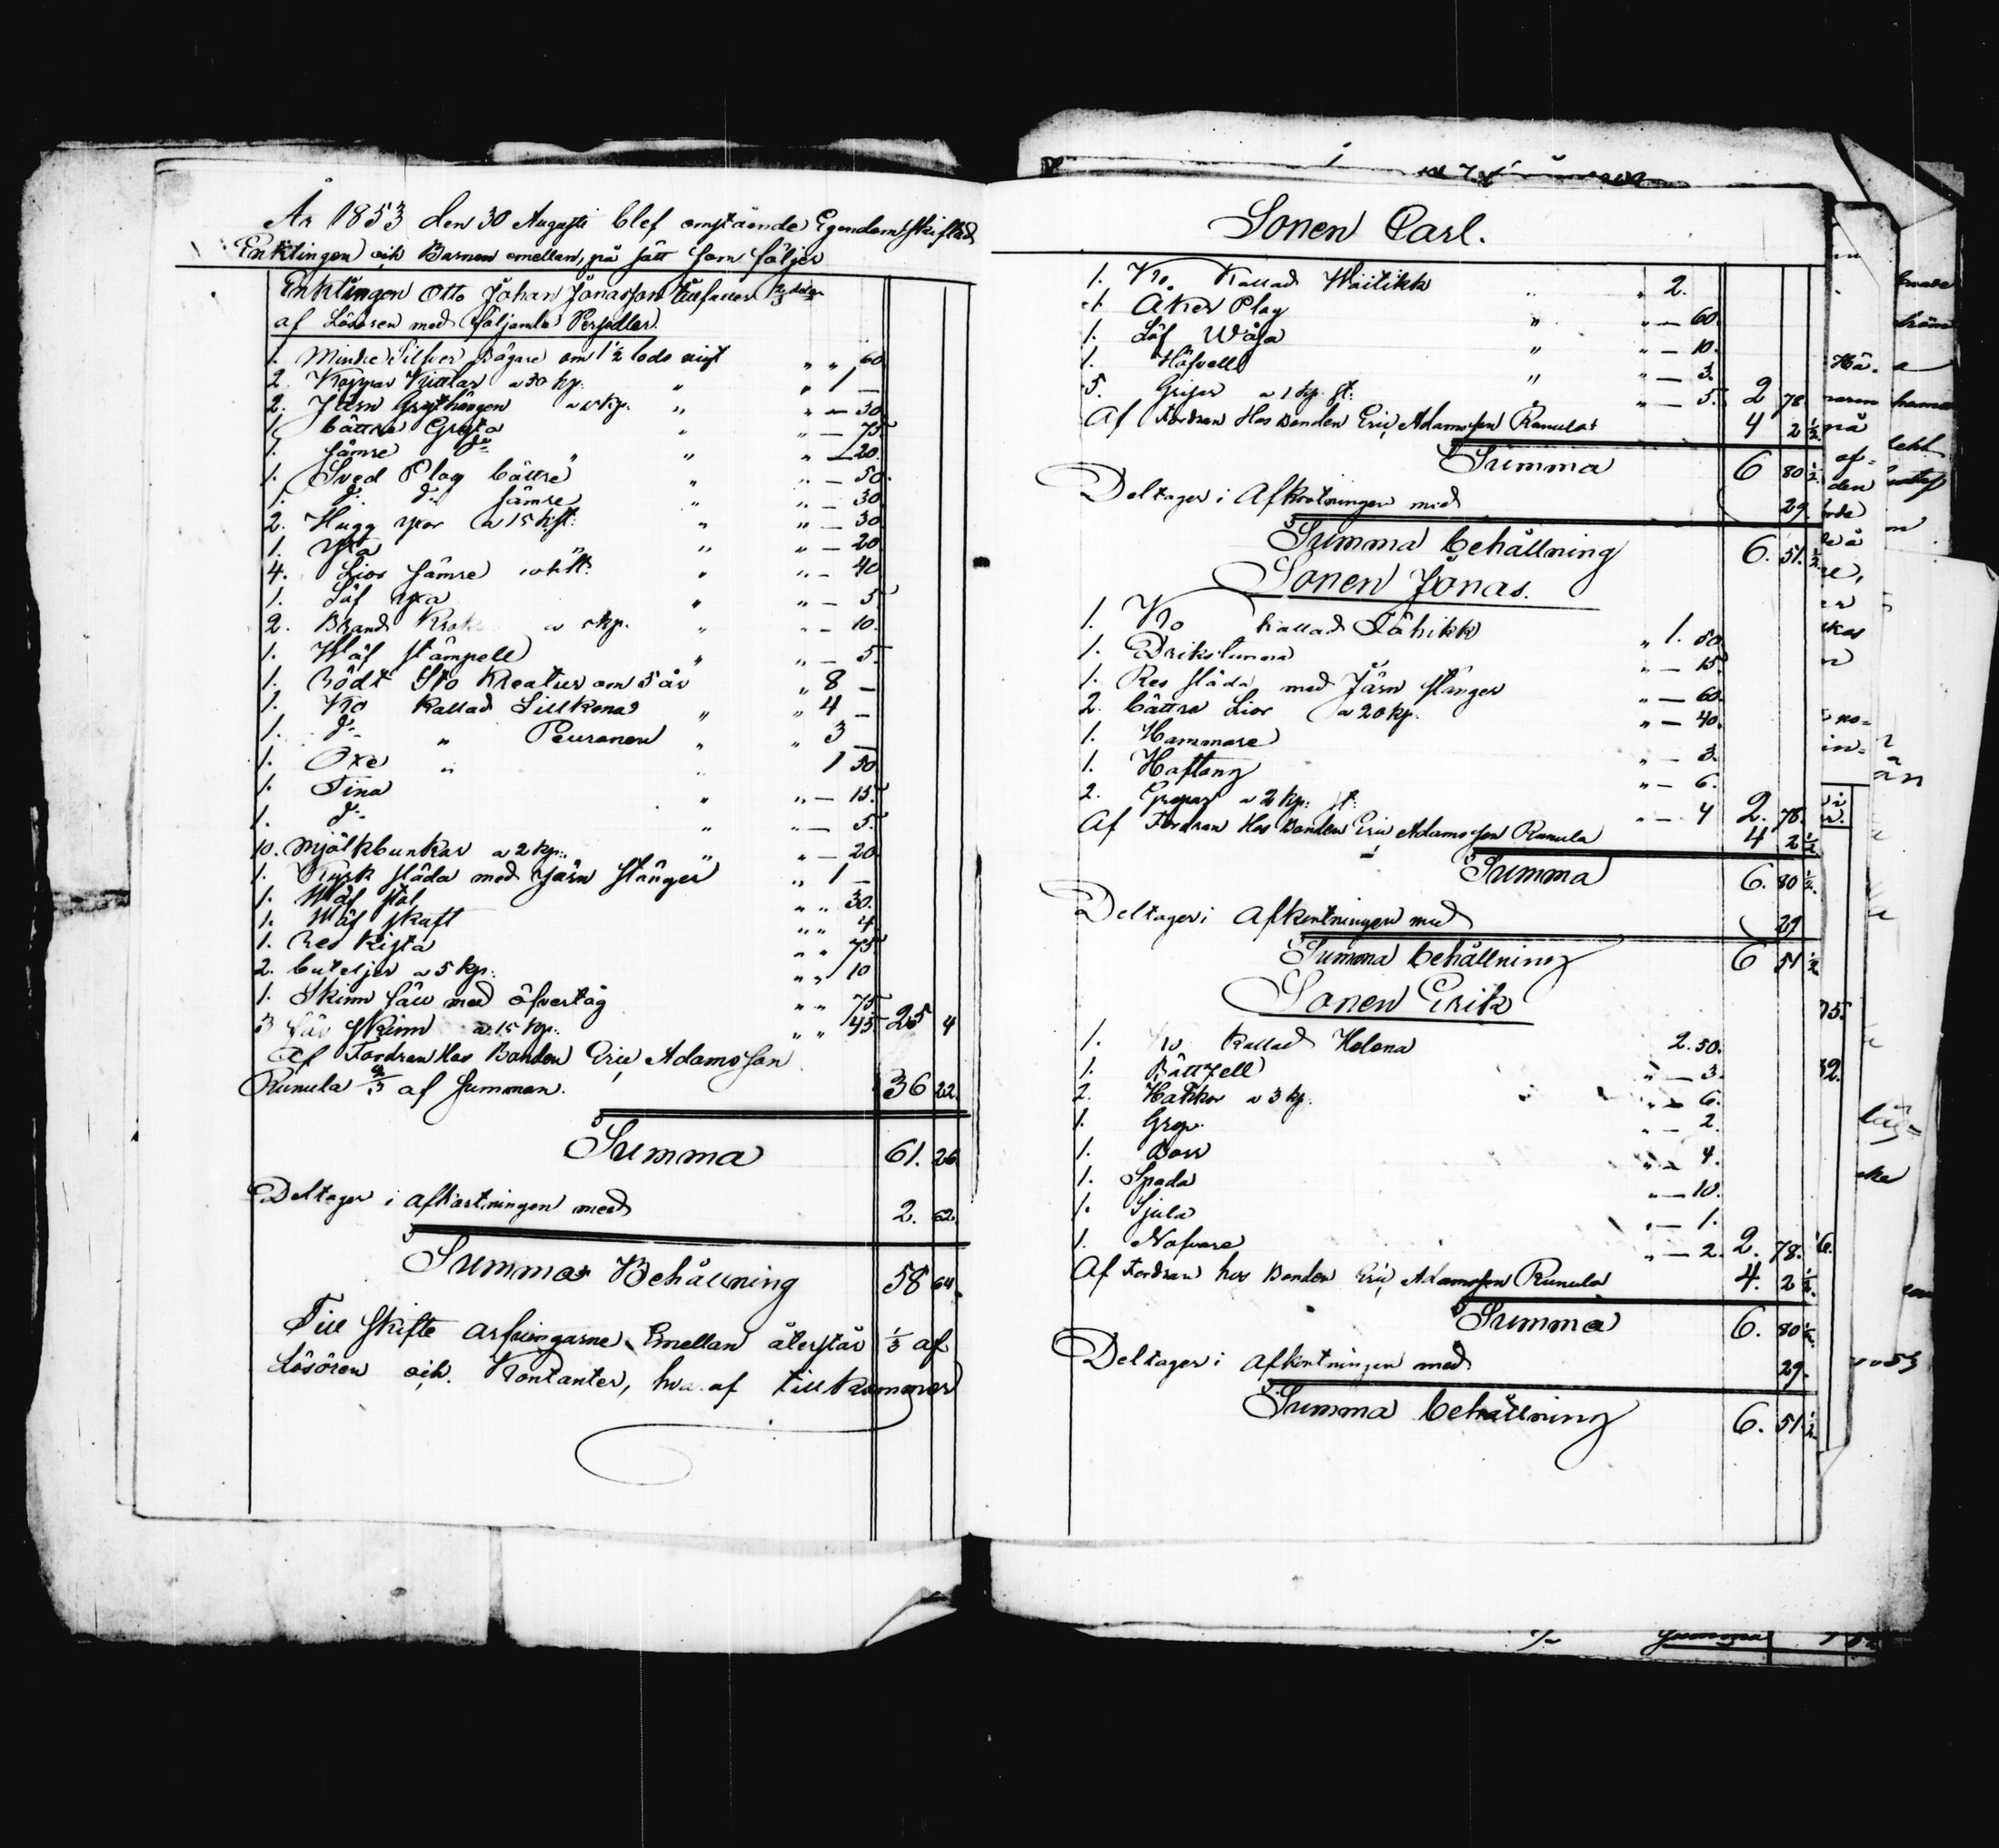 År 1853 den 30 Augusti blef omstående Egendom skiftad
Enklingen och Barnen emellan, på sätt som följer
Enklingen Otto Johan Jönasson tillfaller 2/3 delar
af Lösören med följande Persedlar.
1. Mindre Silfver Bägare om 1 1/2 lods vigt " " 60.
2. Koppar Kittlar a 50 kp: " " 1 —
2. Järn Grythängen a 15 kp. " " — 30
1. bättre Gryta " " — 75
1. sämre do " " — 20.
1. Sved Plog bättre " " — 50.
1. do do sämre " " — 30
2. Hugg yxor a 15 k st: " " — 30
1. yxa " " — 20
4. Lior sämre 10 k st: " " — 40
1. Löf yxa " " — 5
2. Brand Krok a 5 kp. " " — 10.
1. Wäf stämpell " " — 5.
1. Rödt Sto Kreatur om 5 år " 8 —
1. Ko Kallad Lillkona " " 4 —
1. do " Peuranen " " 3 —
1. Oxe " " 1 50
1. Tina " " — 15.
1. do " " — 5.
10. Mjölkbunkar a 2 kp: " " — 20
1. Kyrk släda med Järn stänger " 1 —
1. Wäf stol " " 30.
1. Wäf skaft " " 4
1. Res Kista " " 75
2. buteljer a 5 kp: " " 10
1. Skinn fäll med öfvertåg " " 75
3 får skinn a 15 kp: " " 45 25 4
Af Fordran Hos Bonden Eric Adamsson
Runula 2/3 af Summan. 36 22.
Summa 61. 26
Deltager i afkortningen med 2. 62.
Summa Behållning 58 64.
Till skifte arfvingarne Emellan återstår 1/3 af
Lösören och Kontanter, hvaraf tillkommer
Sonen Carl.
1. Ko. Kallad Waitikk " " 2.
1. Åker Plog " " — 60.
1. Löf Wåja " " — 10.
1. Häfvell " " — 3.
5. Gripar a 1 kp. st: " " — 5. 2 78
Af Fordran Hos Bonden Eric Adamsson Runula 4 2 1/2
Summa 6 80 1/2
Deltager i Afkortningen med 29.
Summa behållning 6. 51. 1/2
Sonen Jonas.
1. Ko kallad Tähikk " 1. 50
1. Drikstunna " — 15
1. Res släda med Järn stänger " — 60.
2. bättre Lior a 20 kp. " — 40.
1. Hammare " — 3.
1. Haftang " — 6.
2. Grepar a 2 kp: st: " — 4 2. 78.
Af Fordran Hos Bonden Eric Adamsson Runula 4 2 1/2
Summa 6. 80 1/2.
Deltager i Afkortningen med 29
Summa behållning 6 51 1/2
Sonen Erik
1. Ko Kallad Helena 2. 50.
1. Båttzell " — 3.
2. Hakkor a 3 kp. " — 6.
1. Grep. " — 2.
1. Borr " — 4.
1. Spada " — 10.
1. Sjula " — 1.
1. Nafvare " — 2. 2. 78.
Af Fordran hos Bonden Eric Adamsson Runula 4. 2 1/2.
Summa 6. 80 1/2.
Deltager i afkortningen med 29.
Summa behållning 6. 51. 1/2
Summa